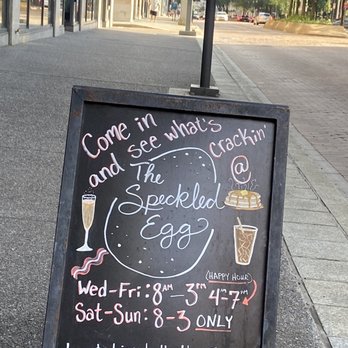 Come in
and see what's
crackin'
@
The
Speckled
Egg
(HAPPY HOUR)
Wed-Fri: 8AM-3PM 4-7PM
Sat-Sun: 8-3 ONLY